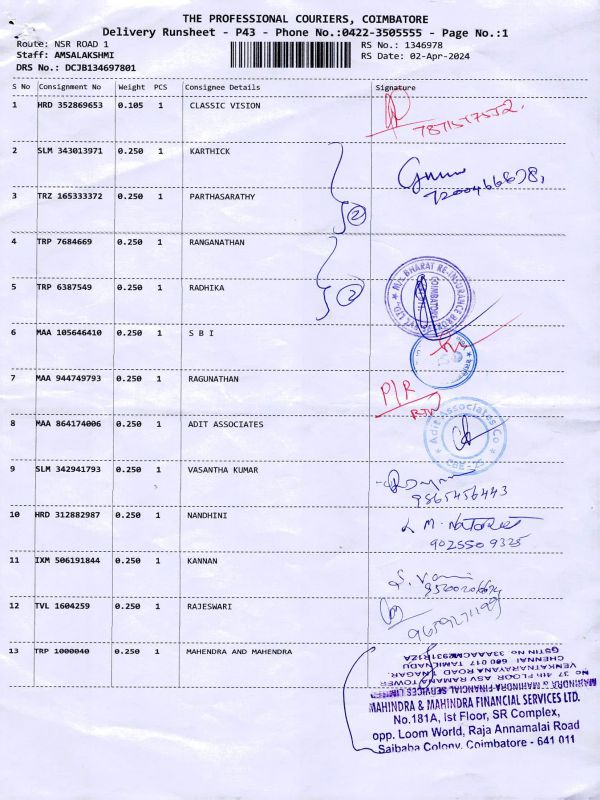 THE PROFESSIONAL COURIERS, COIMBATORE
Delivery Runsheet - P43 - Phone No.:0422-3505555 - Page No.:1
Route: NSR ROAD 1 RS No.: 1346978
Staff: AMSALAKSHMI RS Date: 02-Apr-2024
DRS No.: DCJB134697801
S No Consignment No Weight PCS Consignee Details Signature
1 HRD 352869653 0.105 1 CLASSIC VISION
2 SLM 343013971 0.250 1 KARTHICK
7200466678,
3 TRZ 165333372 0.250 1 PARTHASARATHY
2
4 TRP 7684669 0.250 1 RANGANATHAN
5 TRP 6387549 0.250 1 RADHIKA
2
M/s. BHARAT RE-INSURANCE BROKERS PVT. LTD.
COIMBATORE
6 MAA 105646410 0.250 1 S B I
7 MAA 944749793 0.250 1 RAGUNATHAN
P/R
8 MAA 864174006 0.250 1 ADIT ASSOCIATES
Adit Associates Co
CBE-25
9 SLM 342941793 0.250 1 VASANTHA KUMAR
9865456443
10 HRD 312882987 0.250 1 NANDHINI
9025509325
11 IXM 506191844 0.250 1 KANNAN
12 TVL 1604259 0.250 1 RAJESWARI
13 TRP 1000040 0.250 1 MAHENDRA AND MAHENDRA
MAHINDRA & MAHINDRA FINANCIAL SERVICES LIMITED
No 37 4th FLOOR ASV RAMANA TOWER
VENKATNARAYANA ROAD T.NAGAR,
CHENNAI 600 017 TAMILNADU
GSTIN No. 33AAACM2931R1ZA
MAHINDRA & MAHINDRA FINANCIAL SERVICES LTD.
No.181A, Ist Floor, SR Complex,
opp. Loom World, Raja Annamalai Road
Saibaba Colony, Coimbatore - 641 011